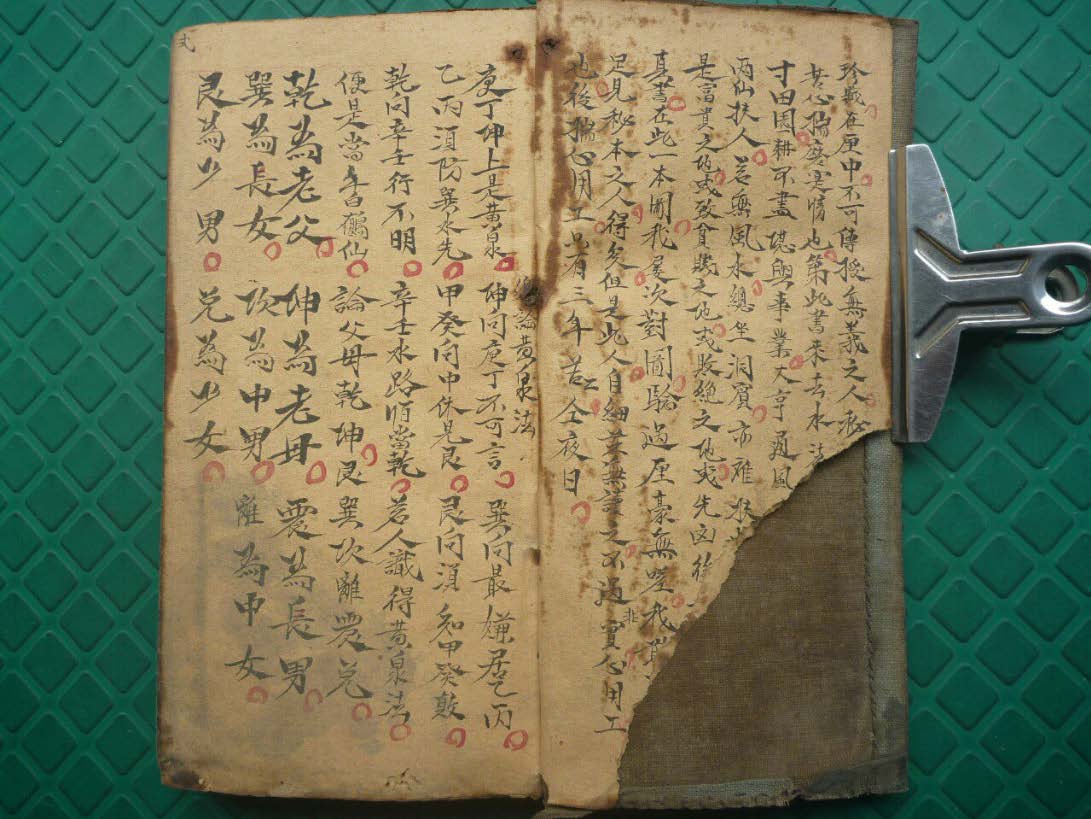 珍藏在匣中不可傳授無義之人秘
苦心揣摩寔情也第此書来去水法
寸田園耕不盡堪輿事業大亨通風
丙仙扶人若無風水總坐洞賓亦难扶
是富貴之地或致貧賤之地或敗絕之地或先凶後
真書在此一本圖我屡次對圖驗過厘毫無差我
足見秘本之人得矣但是此人自細無之不過非實心用工
也後揣心用工只有三年苦工仝夜日
論黃泉法
庚丁坤上是黃泉 坤向庚丁不可言 巽向最嫌居乙丙
乙丙須防巽水先 甲癸向中休見艮 艮向須知甲癸
乾向辛壬行不明 辛壬水路怕當乾 若人識得黃泉法
便是當年鶴仙 論父母乾坤艮巽坎離震兌
乾為老父 坤為老母 震為長男
巽為長女 坎為中男 離為中女
艮為少男 兌為少女